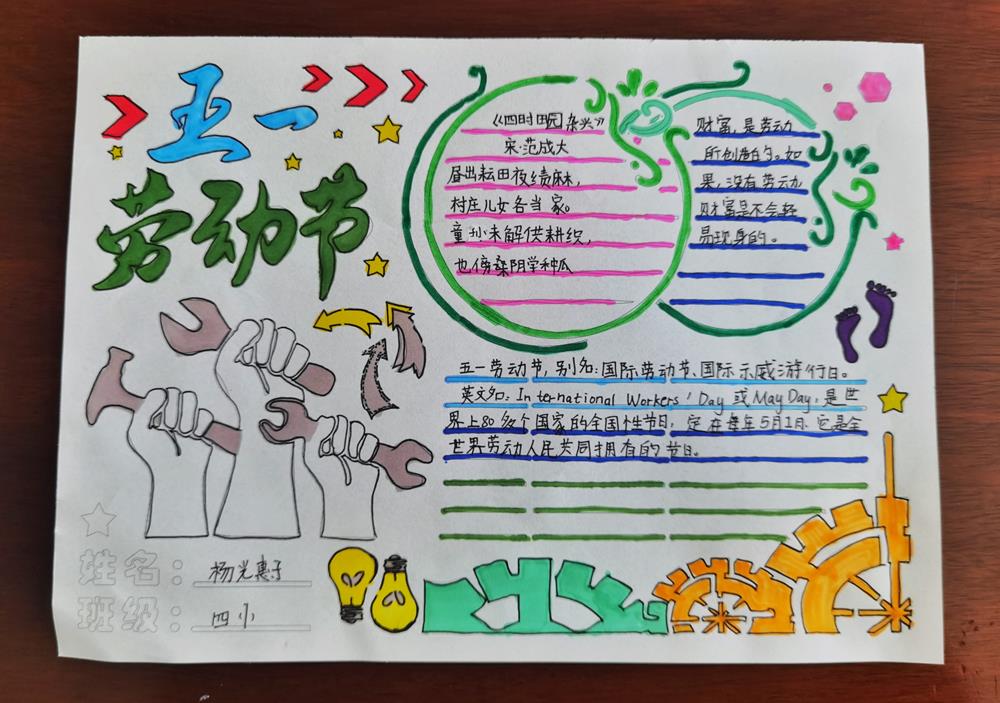 五一
劳动节
《四时田园杂兴》
宋·范成大
昼出耘田夜绩麻,
村庄儿女各当家。
童孙未解供耕织,
也傍桑阴学种瓜
财富,是劳动
所创造的。如
果,没有劳动
财富是不会轻
易现身的。
五一劳动节,别名:国际劳动节、国际示威游行日。
英文名:International Workers' Day或May Day,是世
界上80多个国家的全国性节日,定在每年5月1日.它是全
世界劳动人民共同拥有的节日。
姓名: 杨光惠子
班级: 四小